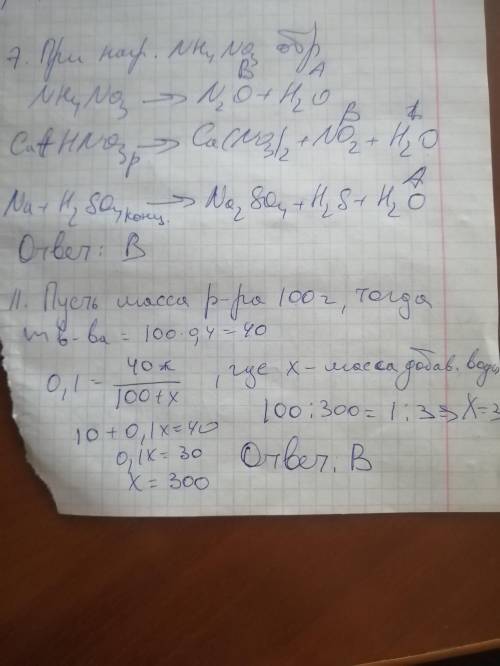 7. При наг. NH4NO3 обр
B A
NH4NO3 → N2O + H2O
B A
Ca + HNO3 р → Ca(NO3)2 + NO2 + H2O
A
Na + H2SO4 конц. → Na2SO4 + H2S + H2O
Ответ: B
11. Пусть масса р-ра 100 г, тогда
m в-ва = 100·0,4 = 40
0,1 = 40/100+x , где x - масса добав. воды
100:300 = 1:3 => X=3
10 + 0,1x = 40
0,1x = 30
x = 300
Ответ: B